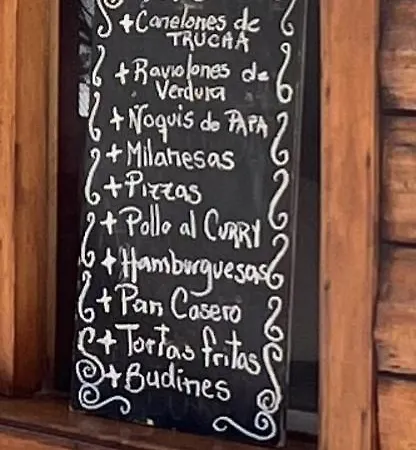 + Canelones de
TRUCHA
+ Raviolones de
Verdura
+ Ñoquis de PAPA
+ Milanesas
+ Pizzas
+ Pollo al CURRY
+ Hamburguesas
+ Pan Casero
+ Tortas fritas
+ Budines